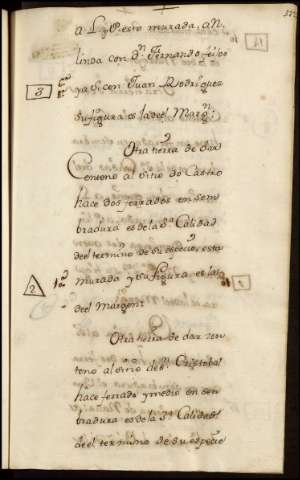 murada, al
linda con Dn. Fernando
y a S. con Juan Rodriguez
su figura es la del Margn.
Otra tierra de dar
Centeno al sitio do Castro
hace dos ferrados en sem
bradura es de la Sa. Calidad
de el termino de su especie, esta
murada y su figura es la
de el Margen
Otra tierra de dar cen
teno al sitio de Sn. Cristobal
hace ferrado y medio en sen
bradura es de la Calidad
de el termino de su especie